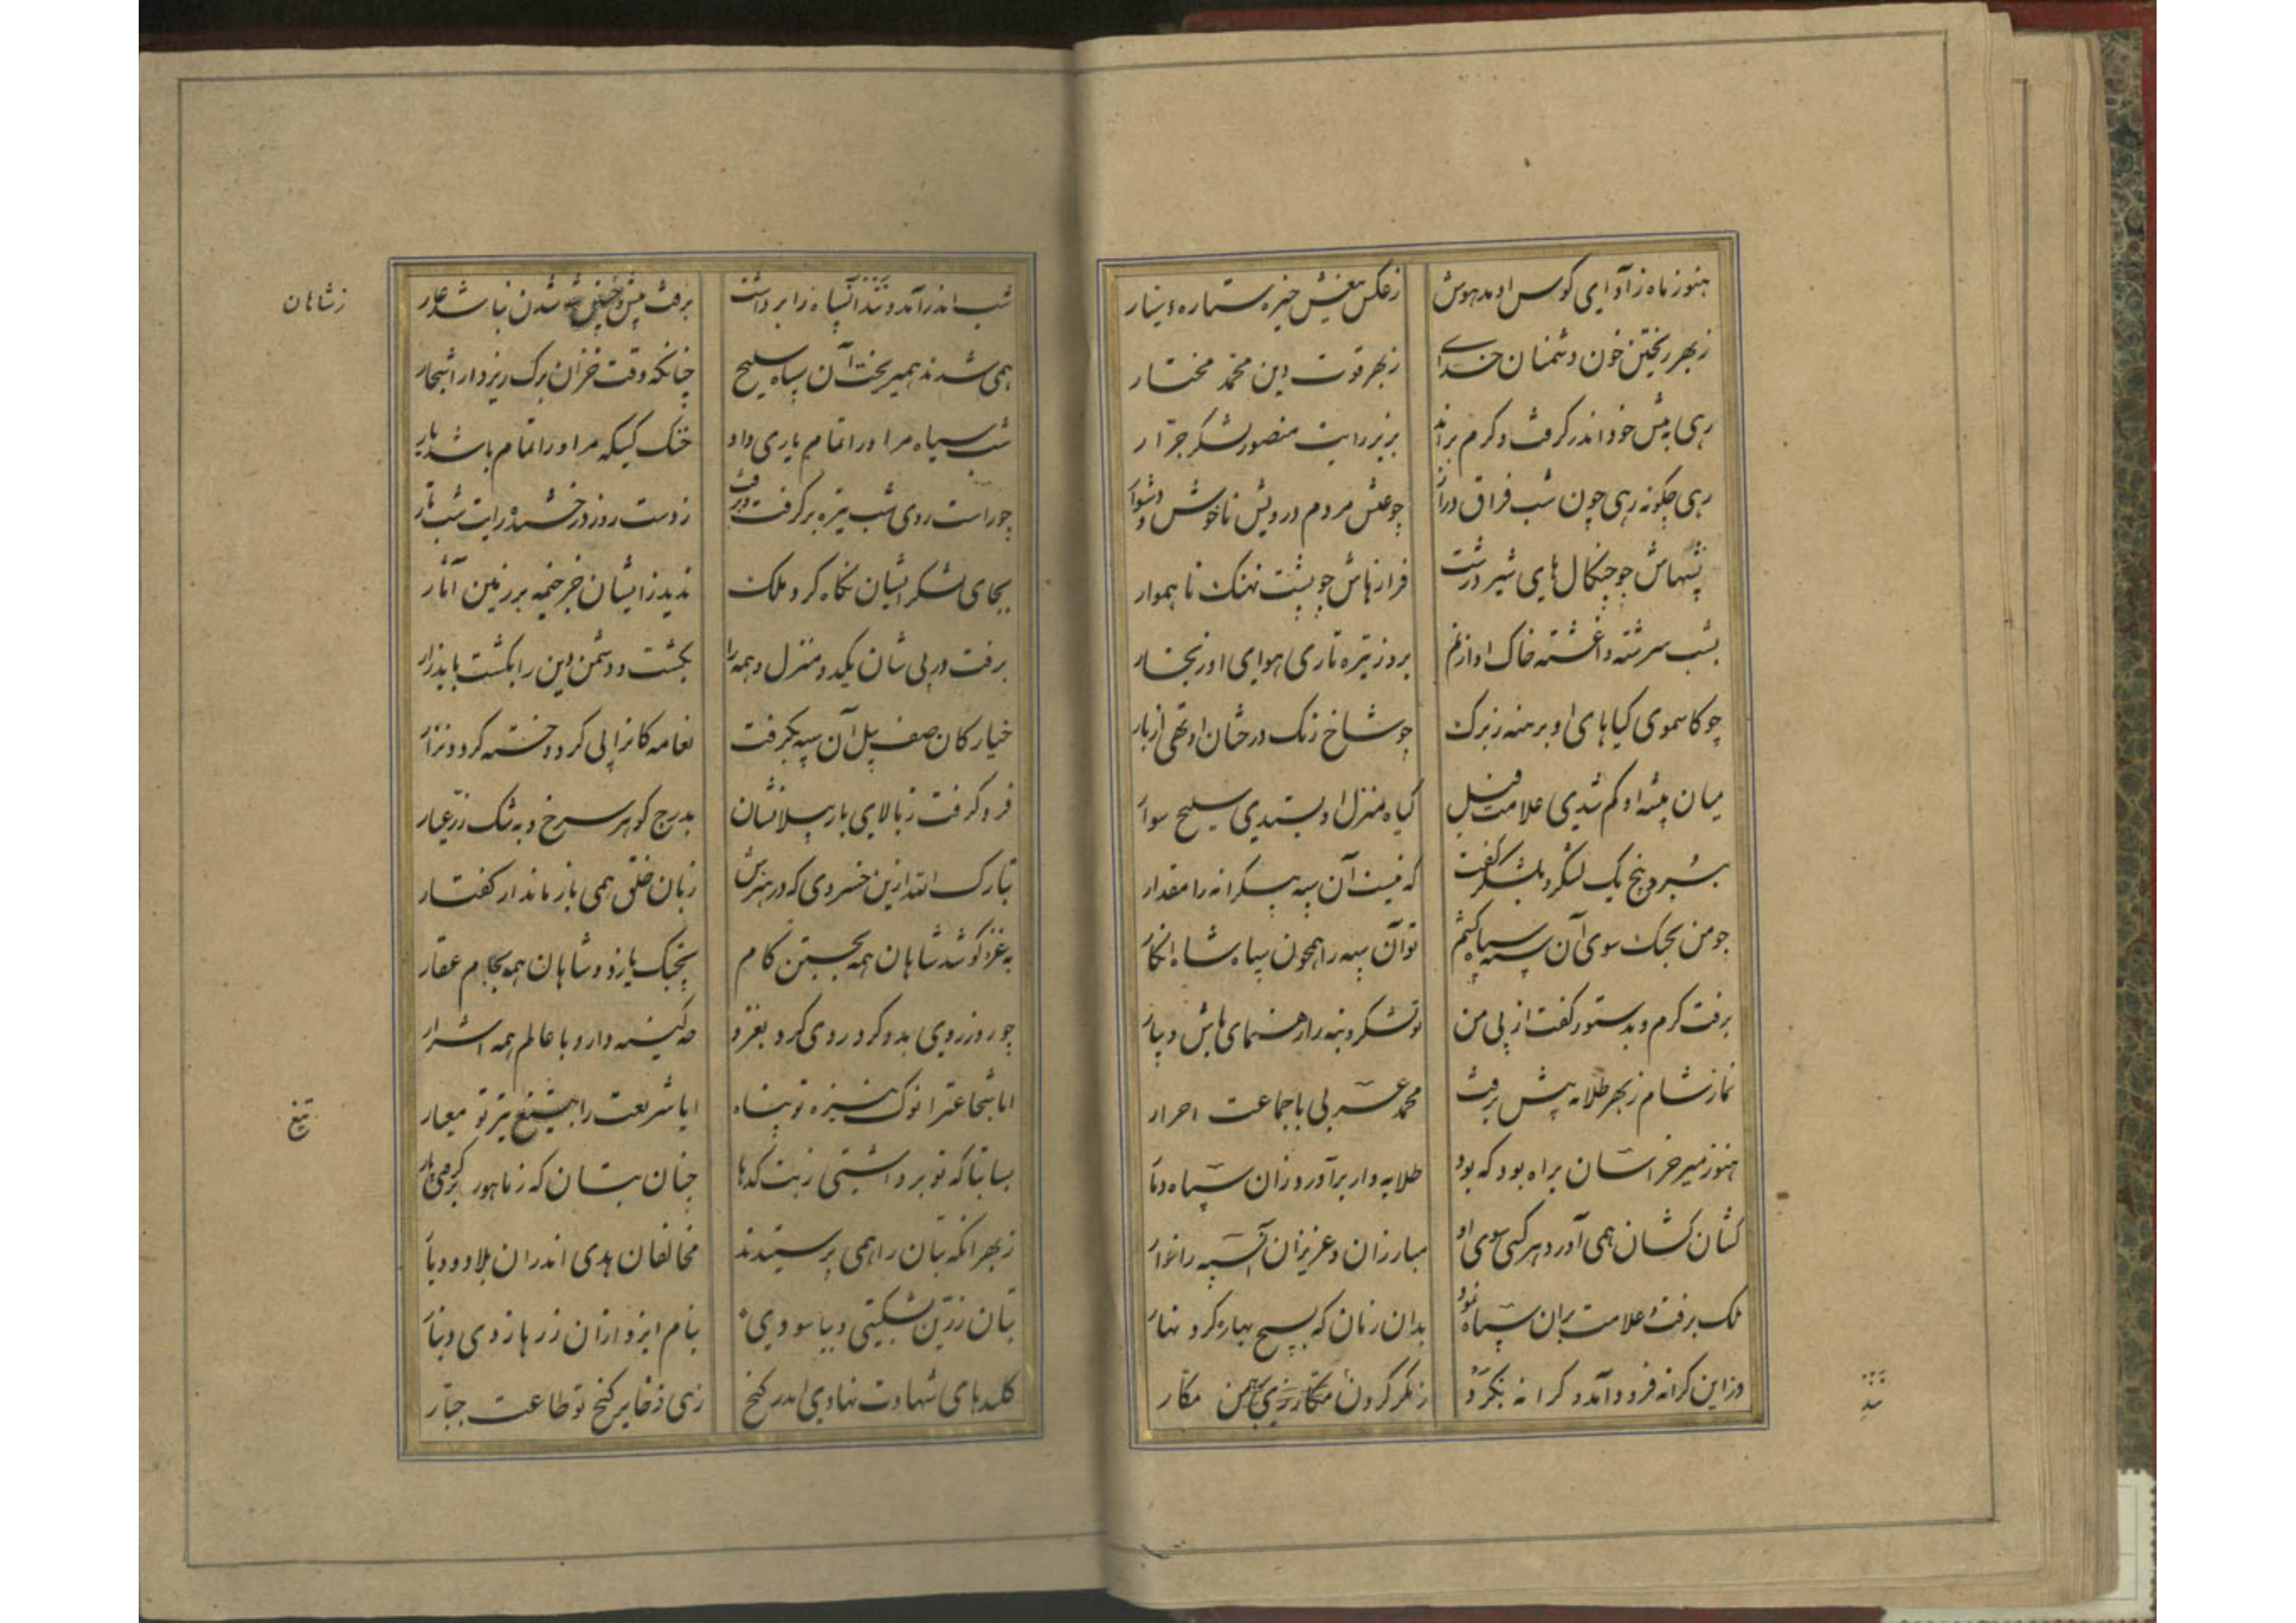 هنوز ماه ز آوای کوس او مدهوش ز عکس تیغش خیره ستاره سیار
ز بهر ریختن خون دشمنان خدای ز بهر قوت دین محمد مختار
رهی به پیش خود اندر گرفت و گرم براند بزیر رایت منصور لشکر جرار
رهی چگونه رهی چون شب فراق دراز چو عیش مردم درویش ناخوش و دشوار
پشتهاش چو چنگال های شیر درشت فرازهاش چو پشت نهنگ ناهموار
بشب سرشته و آغشته خاک او از نم بروز تیره و تاری هوای او ز بخار
چو کاسموی گیاهای او برهنه ز برگ چو شاخ رنگ درختان او تهی از بار
میان بیشه او گم شدی علامت فیل گیاه منزل او بستدی سلیح سوار
بشب دو پنج یک لشکر و بلشکر گفت که نیست آن سپه بیکرانه را مقدار
چو من بجنگ سوی آن سپه سپاه کشم تو آن سپه را همچون سپاه شاه انگار
برفت گرم و بدستور گفت از پی من تو لشکر و بنه را رهنمای باش و بیار
نماز شام ز بهر طلایه پیش برفت محمد عربی با جماعت احرار
هنوز میر خراسان براه بود که بود طلایه دار برآورد زان سپاه دمار
کشان کشان همی آورد هر کسی سوی او مبارزان و عزیزان آن سپه را خوار
ملک برفت و علامت بران سپاه نمود بدان زمان که بسیج بهاره کرد نهار
وز این کرانه فرود آمد و کرانه بکرد ز مکر کردن مکار
تند
شب اندر آمد و تند آن سپاه را برداشت برفت پیش و شدن نباشد عار
زشاهان
همی شدند و همیریخت آن سپاه سلیح چنانکه وقت خزان برگ ریزد از اشجار
شب سیاه مر او را تمام یاری داد خنک کسیکه مر او را تمام باشد یار
چو راست روی شب تیره برگرفت و برفت ز دست روز درخشنده رایت شب تار
بجای لشکر ایشان نگاه کرد ملک ندید زایشان جز خیمه بر زمین آثار
برفت در پی شان یکدو منزل و همه را بکشت و دشمن دین را بکشت باید زار
خیارکان صف پیل آن سپه بگرفت نفایه کانرا پی کرد و خسته کرد و نزار
فرو گرفت ز بالای بار پیلانشان بدرج گوهر سرخ و به تنگ زر عیار
تبارک الله ازین خسروی که در هنرش زبان خلق همی باز ماند از گفتار
به غزو کوشد شاهان همه بجستن کام بجنگ یازد و شاهان همه بجام عقار
چو روز روی بدو کرد روی کرد بغزو چه کینه دارد با عالم همه اشرار
ایا شجاعت را نوک نیزه تو پناه ایا شریعت را تیغ تیز تو معیار
تیغ
بسا بتا که تو برداشتی ز بتکدها چنان بتان که ز ماهور
ز بهر آنکه بتان را همی پرستیدند مخالفان هدی اندران بلاد و دیار
بتان زرین بشکستی و بپاسودی بنام ایزد ازان زرها زدی دینار
کلیدهای شهادت نهادی اندر گنج زهی ذخایر گنج تو طاعت جبار